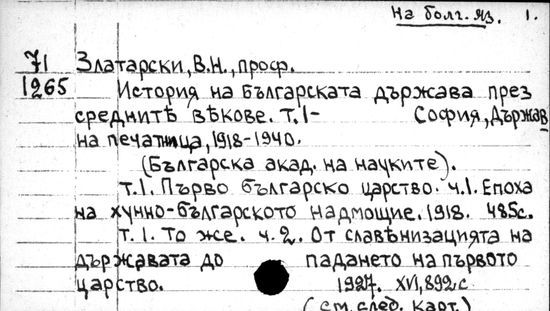 на болг. яз. 1.
71 Златарски, В.Н., проф.
1265 История на Българската държава през
среднитѣ вѣкове. Т.1- София, Държав
на печатница, 1918-1940.
(Българска акад. на науките).
Т.1. Първо българско царство. ч.1. Епоха
на хунно-българското надмощие. 1918. 485с.
Т.1. То же. ч.2. От славѣнизацията на
държавата до падането на първото
царство. 1927. XVI, 892с
(см. след. карт.)